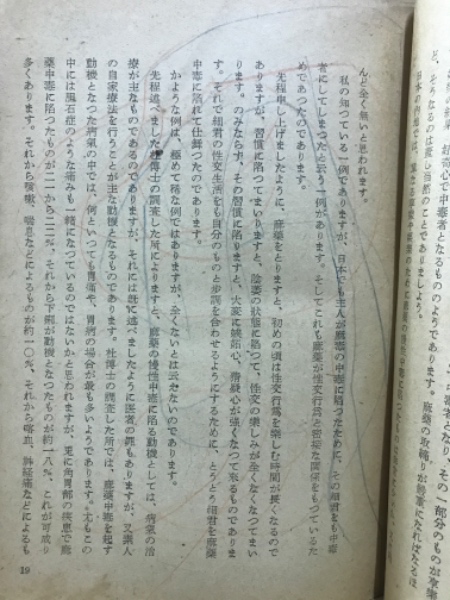 ど、そうなるのは寧ろ当然のことでありましよう。
んど全く無いと思われます。
私の知つている一例でありますが、日本でも主人が麻薬の中毒に陥つたために、その細君をも中毒
者にしてしまつたと云う一例があります。そしてこれも麻薬が性交行為と密接な関係をもつているた
めであつたのであります。
先程申し上げましたように、麻薬をとりますと、初めの頃は性交行為を楽しむ時間が長くなるので
ありますが、習慣に陥つてまいりますと、陰萎の状態に陥つて、性交の楽しみが全くなくなつてまい
ります。のみならず、その習慣に陥りますと、大変に嫉妬心、猜疑心が強くなつて来るものでありま
す。それで細君の性交生活をも自分のものと歩調を合わせるようにするために、とうとう細君を麻薬
中毒に陥れて仕舞つたのであります。
かような例は、極めて稀な例ではありますが、全くないとは云えないのであります。
先程述べました杜博士の調査した所によりますと、麻薬の慢性中毒に陥る動機としては、病気の治
療が主なものであるのでありますが、それには既に述べましたように医者の罪もありますが、又素人
の自家療法を行うことが主な動機となるものであります。杜博士の調査した所では、麻薬中毒を起す
動機となつた病氣の中では、何といつても胃痛や、胃病の場合が最も多いようであります。尤もこの
中には胆石症のような痛みも一緒になつているのではないかと思われますが、兎に角胃部の疾患で麻
薬中毒に陥つたものが二一から二二%、それから下痢が動機となつたものが約一八%、これが可成り
多くあります。それから咳嗽、喘息などによるものが約一〇%、それから喀血、神経痛などによるも
19